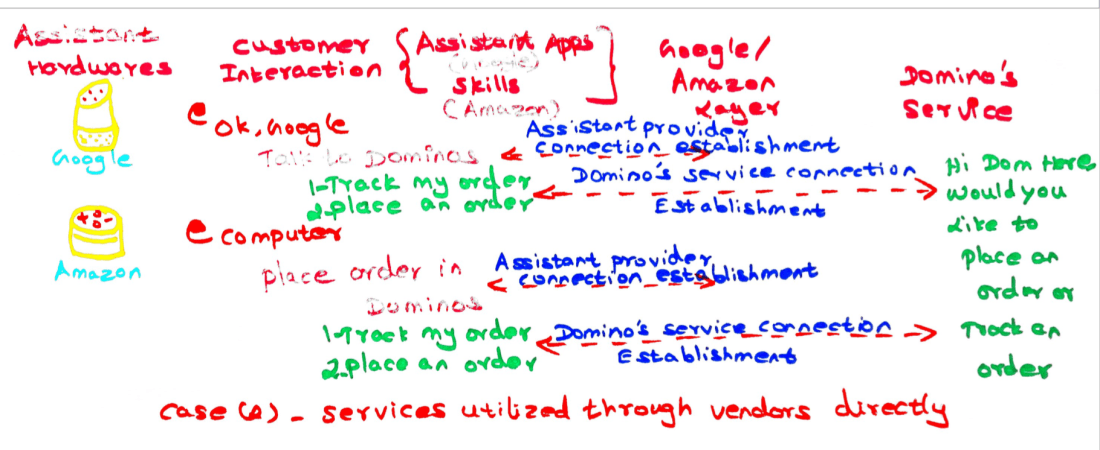 Assistant
Hardwares
Google
Amazon
Customer
Interaction
Assistant Apps
(Google)
Skills
(Amazon)
Google/
Amazon
Layer
Domino's
Service
Ok, Google
Talk to Dominos
1-Track my order
2.place an order
Assistant provider
connection establishment
Domino's service connection
Establishment
Hi Dom Here
would you
Like to
place an
order or
Track an
order
computer
place order in
Dominos
1-Track my order
2.place an order
Assistant provider
connection establishment
Domino's service connection
Establishment
case (A) - services utilized through vendors directly